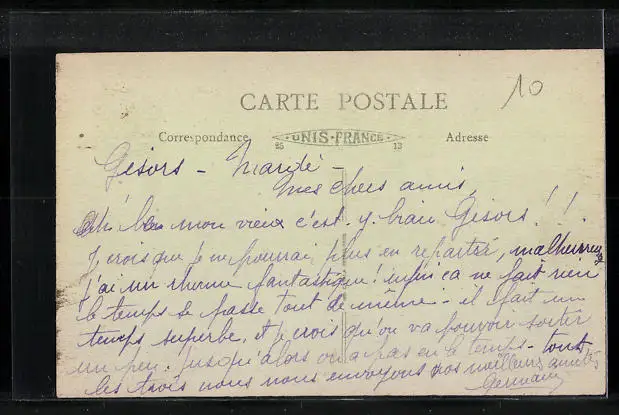 10
CARTE POSTALE
Correspondance UNIS-FRANCE Adresse
25 13
Gisors - Mardi -
Mes chers amis,
Eh ben mon vieux c'est-y-biau Gisors!!
Je crois que je ne pourrai plus en repartir, malheureux
j'ai un rhume fantastique! enfin ça ne fait rien
le temps se passe tout de même - il fait un
temps superbe, et je crois qu'on va pouvoir sortir
un peu. Jusqu'alors on a pas eu le temps - tous
les trois nous vous envoyons nos meilleurs amitiés
Germain